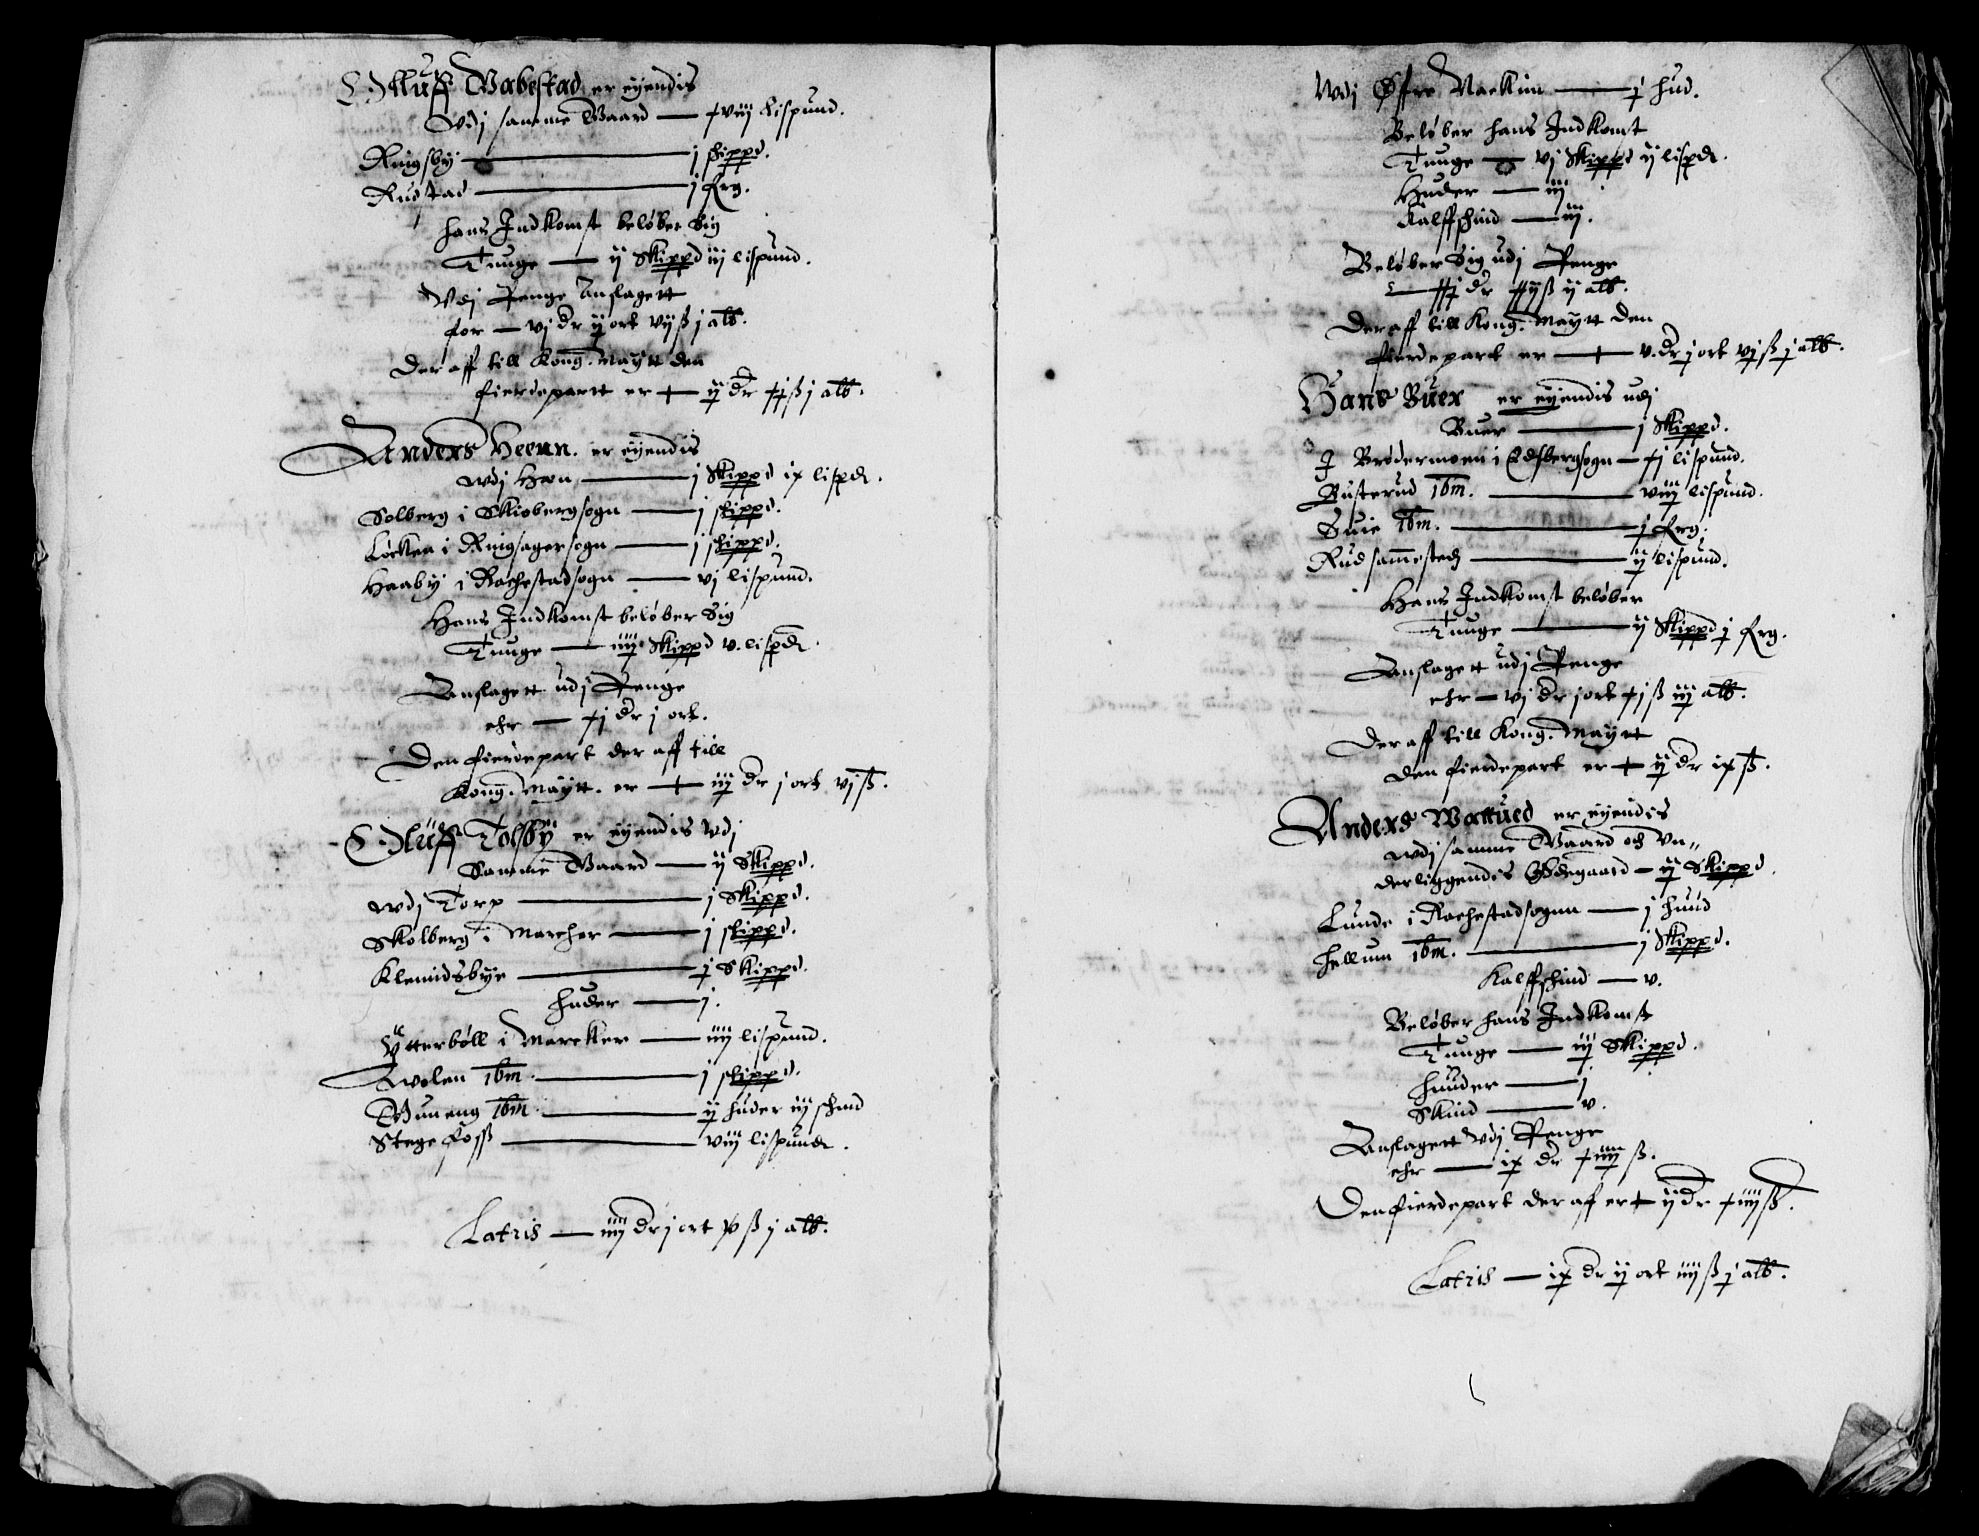 Olluff Wabestad er eyendis
wdj samme Gaard — xviij lispund.
Ringsby — j skippd.
Rustad — j frg.
hans Indkomst beløber Sig
Tunge — ij Skippd iij lispund.
Wdj Penge Anslagett
for — vj dr ij ort vij ß j alb.
Der aff till Kong. Maytt den
fierdepartt er — ij dr xj ß j alb.
Anders Heenn. er eyendis
wdj Hæn — j Skippd ix lispd.
Solberg i Skiebergsogn — j skippd.
Løcken i Ringsagersogn — j skippd.
Haaby i Rachestadsogn — vj lispund.
Hans Indkomst beløber Sig
Tunge — iiij Skippd v. lispd.
Anslagett udj Penge
ehr — xj dr j ort.
Den fierdepart der aff till
Kong. Maytt. er — iij dr j ort vj ß.
Olluff Tolsby er eyendis wdj
Samme Gaard — ij Skippd.
wdj Torp — j Skippd.
Skolberg i Marcher — j skippd.
Klemidsbye — j Skippd.
huder — j.
Ytterbøll i Marcker — iiij lispund.
Wolen ibm. — j skippd.
ibm. — ij huder iij skind
Stegefoss — viij lispund.
Latris — iiij dr j ort x ß j alb.
Wdj Øffre Naekim — j hud.
Beløber hans Indkomst
Tunge — vj Skippd ij lispd.
Huder — iij
Kalffskind — iij.
Beløber Sig udj Penge
— xxj dr xxij ß ij alb.
Der aff till Kong. Maytt den
fierdepart er — v. dr j ort vj ß j alb.
Hans Buer er eyendis udj
Buer — j Skippd.
I Brødermoen i Edsbergsogn — xj lispund.
Busterud ibm. — viij lispund.
Suie ibm. — j frg.
Rud sammested — ij lispund.
Hans Indkomst beløber
Tunge — ij Skippd j frg.
Anslagett udj Penge
ehr — vj dr j ort xj ß iij alb.
Der aff till Kong. Maytt
den fierdepart er — ij dr ix ß.
Anders Wattued er eyendis
wdj samme Gaard och Un„
derliggendis Ødegaard — ij Skippd.
Lunde i Rachestadsognn — j huud
Hellum ibm. — j Skippd.
Kalffskind — v.
Beløber hans Indkomst
Tunge — iij Skippd.
huuder — j
Skind — v.
Anslagett Wdj Penge
ehr — ix dr xiiij ß.
Den fierdepart der af er ij dr xiiij ß.
Latris — ix dr ij ort iiij ß j alb.